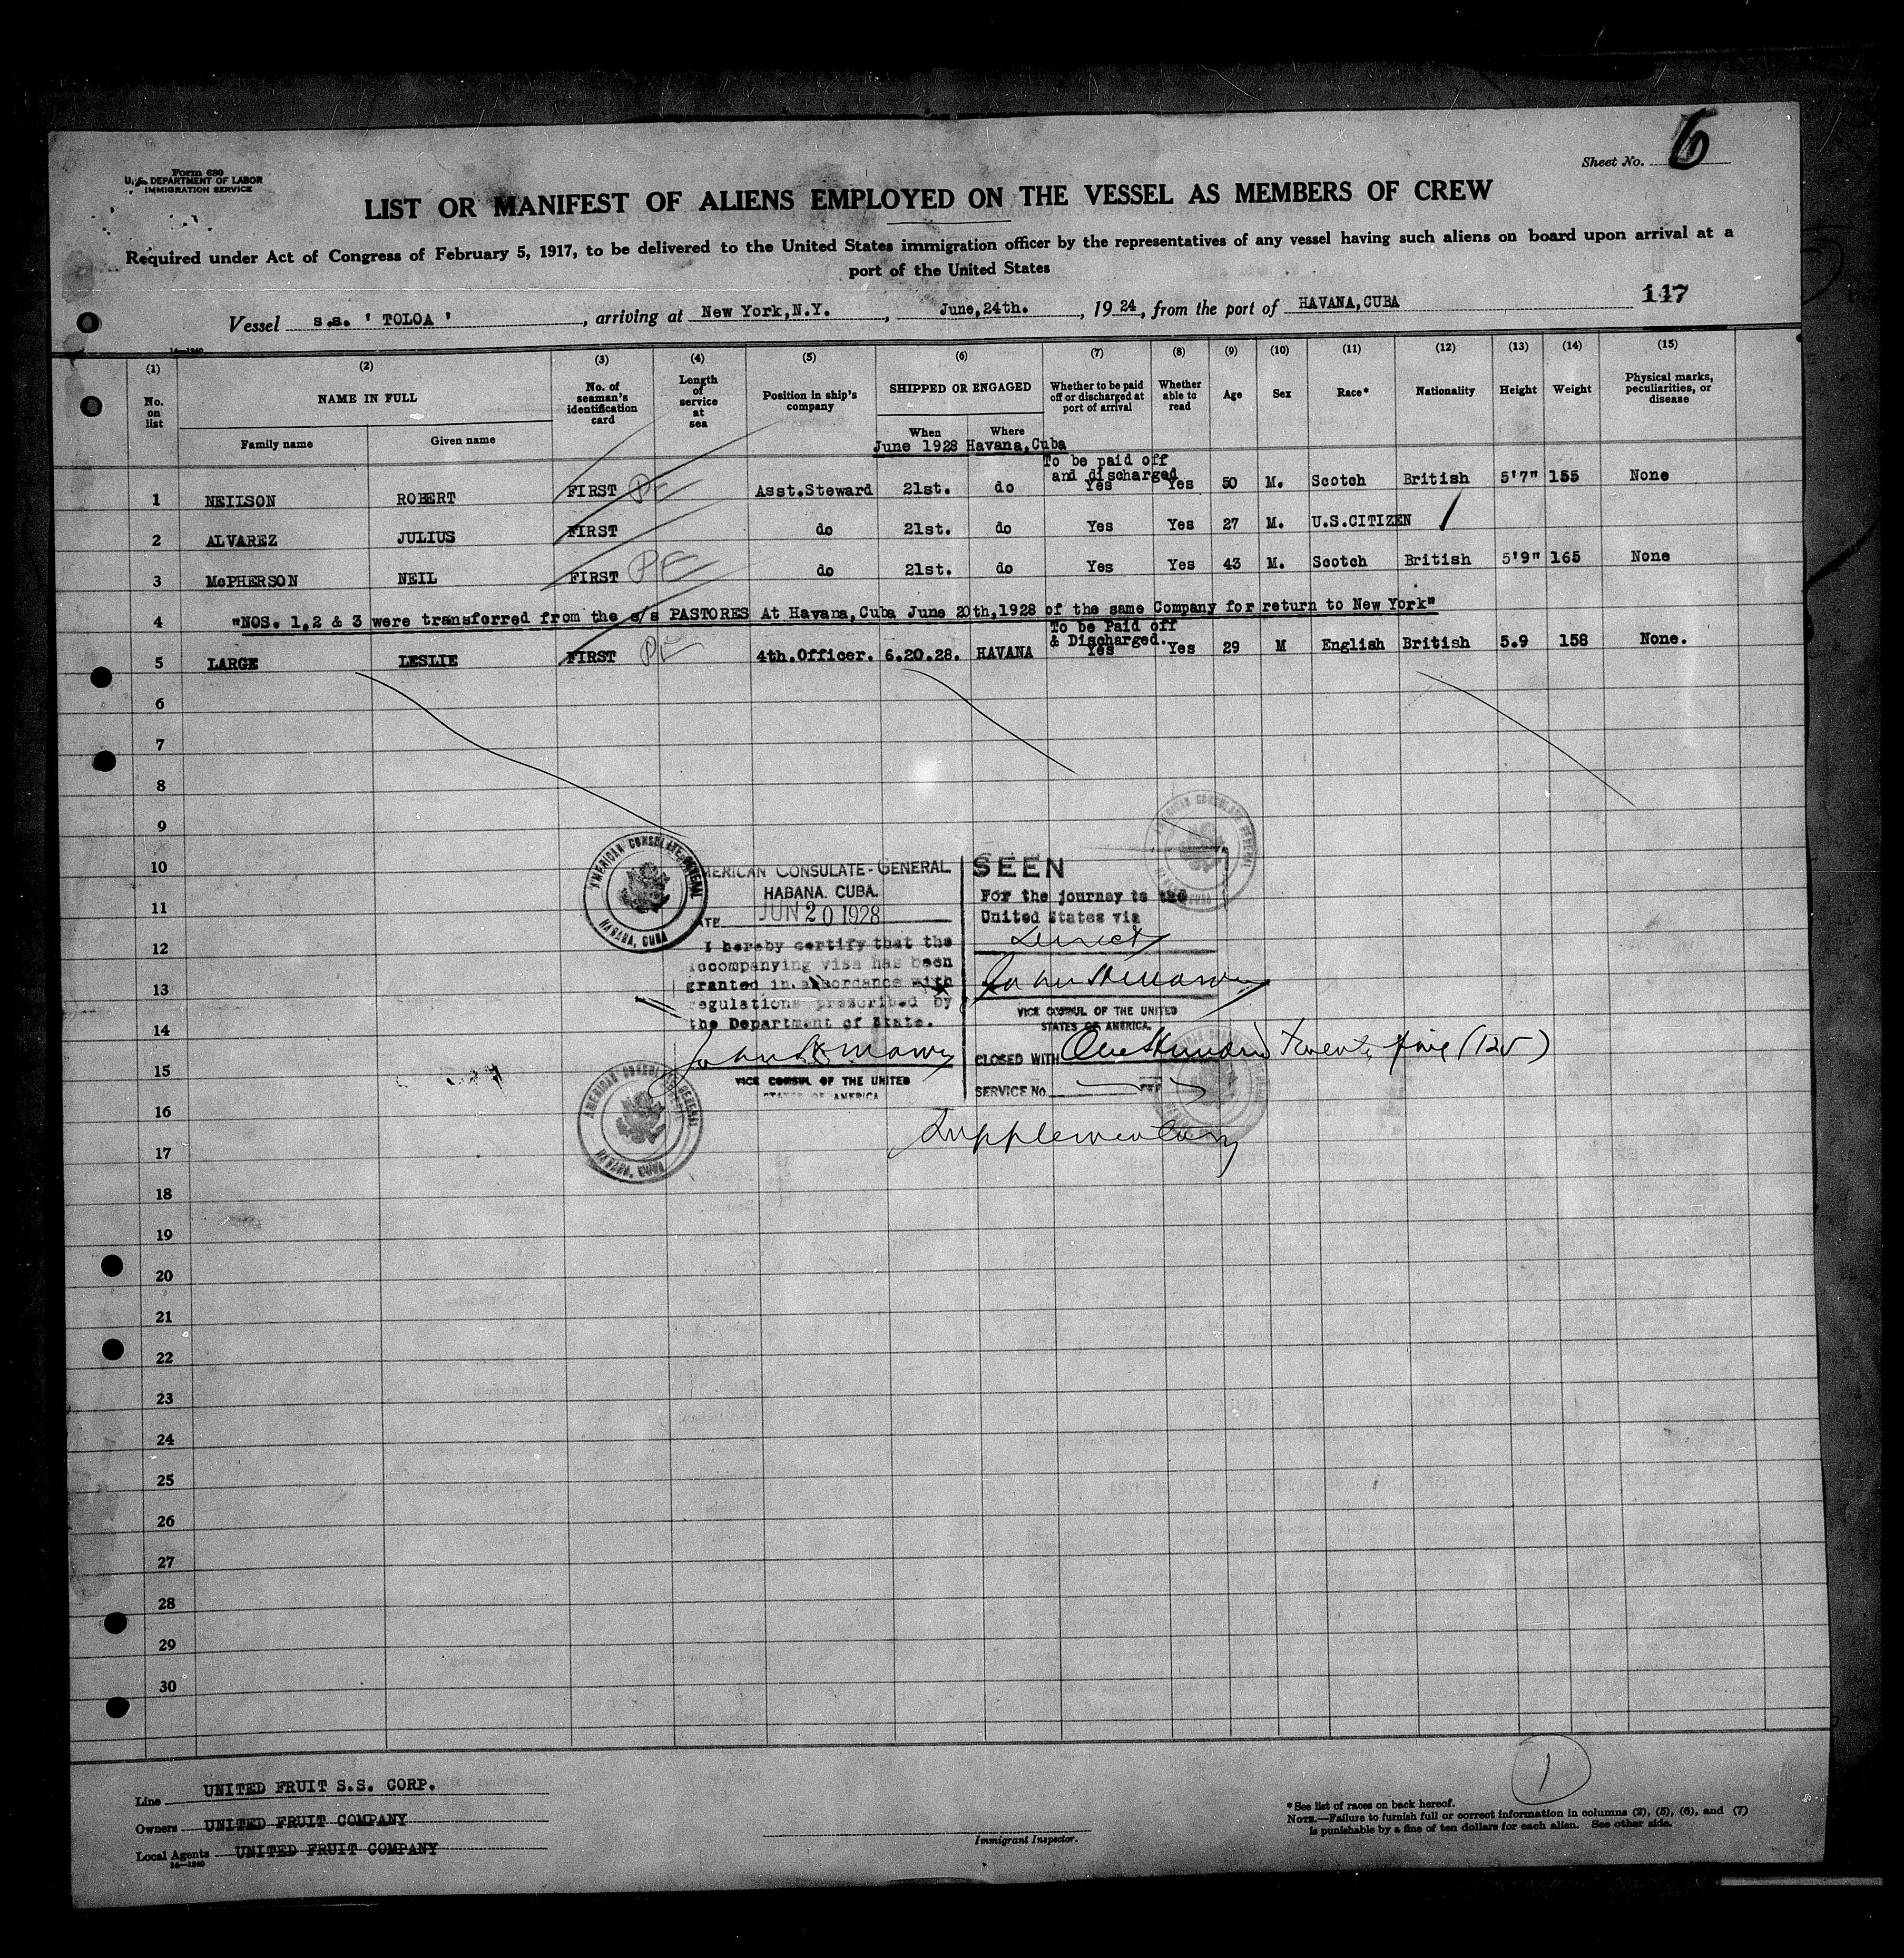 Form 680
U. S. DEPARTMENT OF LABOR
IMMIGRATION SERVICE
Sheet No. 6
LIST OR MANIFEST OF ALIENS EMPLOYED ON THE VESSEL AS MEMBERS OF CREW
Required under Act of Congress of February 5, 1917, to be delivered to the United States immigration officer by the representatives of any vessel having such aliens on board upon arrival at a
port of the United States
147
Vessel s.s. ' TOLOA ' , arriving at New York,N.Y. , June,24th. , 1924, from the port of HAVANA,CUBA
14—1240
(1) (2) (3) (4) (5) (6) (7) (8) (9) (10) (11) (12) (13) (14) (15)
No. on list NAME IN FULL No. of seaman's identification card Length of service at sea Position in ship's company SHIPPED OR ENGAGED Whether to be paid off or discharged at port of arrival Whether able to read Age Sex Race* Nationality Height Weight Physical marks, peculiarities, or disease
Family name Given name When Where
June 1928 Havana,Cuba
To be paid off
and discharged
1 NEILSON ROBERT FIRST PE Asst.Steward 21st. do Yes Yes 50 M. Scotch British 5'7" 155 None
2 ALVAREZ JULIUS FIRST do 21st. do Yes Yes 27 M. U.S.CITIZEN
3 McPHERSON NEIL FIRST PE do 21st. do Yes Yes 43 M. Scotch British 5'9" 165 None
4 "NOS. 1,2 & 3 were transferred from the s/s PASTORES At Havana,Cuba June 20th,1928 of the same Company for return to New York"
To be Paid off
& Discharged.
5 LARGE LESLIE FIRST PE 4th.Officer. 6.20.28. HAVANA Yes Yes 29 M English British 5.9 158 None.
6
7
8
9
10
11
12
13
14
15
16
17
18
19
20
21
22
23
24
25
26
27
28
29
30
AMERICAN CONSULATE GENERAL
HABANA, CUBA
AMERICAN CONSULATE GENERAL
HABANA, CUBA
MERICAN CONSULATE-GENERAL
HABANA. CUBA.
ATE JUN 20 1928
I hereby certify that the
accompanying visa has been
granted in accordance with
regulations prescribed by
the Department of State.
VICE CONSUL OF THE UNITED
STATES OF AMERICA
SEEN
For the journey to the
United States via
Direct
VICE CONSUL OF THE UNITED
STATES OF AMERICA.
CLOSED WITH One Hundred Twenty five (125)
SERVICE No.
Supplementary
AMERICAN CONSULATE GENERAL
HABANA, CUBA
AMERICAN CONSULATE GENERAL
1
Line UNITED FRUIT S.S. CORP.
Owners UNITED FRUIT COMPANY
Local Agents UNITED FRUIT COMPANY
14—1240
Immigrant Inspector.
*See list of races on back hereof.
NOTE.—Failure to furnish full or correct information in columns (2), (5), (6), and (7)
is punishable by a fine of ten dollars for each alien. See other side.